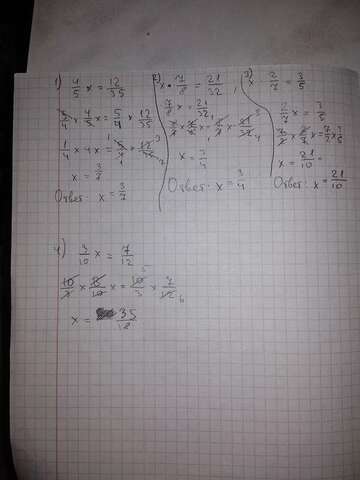 1) 4/5 x = 12/35
5/4 × 4/5 x = 5/4 × 12/35
x = 3/7
Ответ: x = 3/7
2) x · 7/8 = 21/32
7/8 x = 21/32
x = 3/4
Ответ: x = 3/4
3) x · 2/7 = 3/5
2/7 x = 3/5
7/2 × 2/7 x = 7/2 × 3/5
x = 21/10
Ответ: x = 21/10
4) 3/10 x = 7/12
10/3 × 3/10 × x = 10/3 × 7/12
x = 35/18